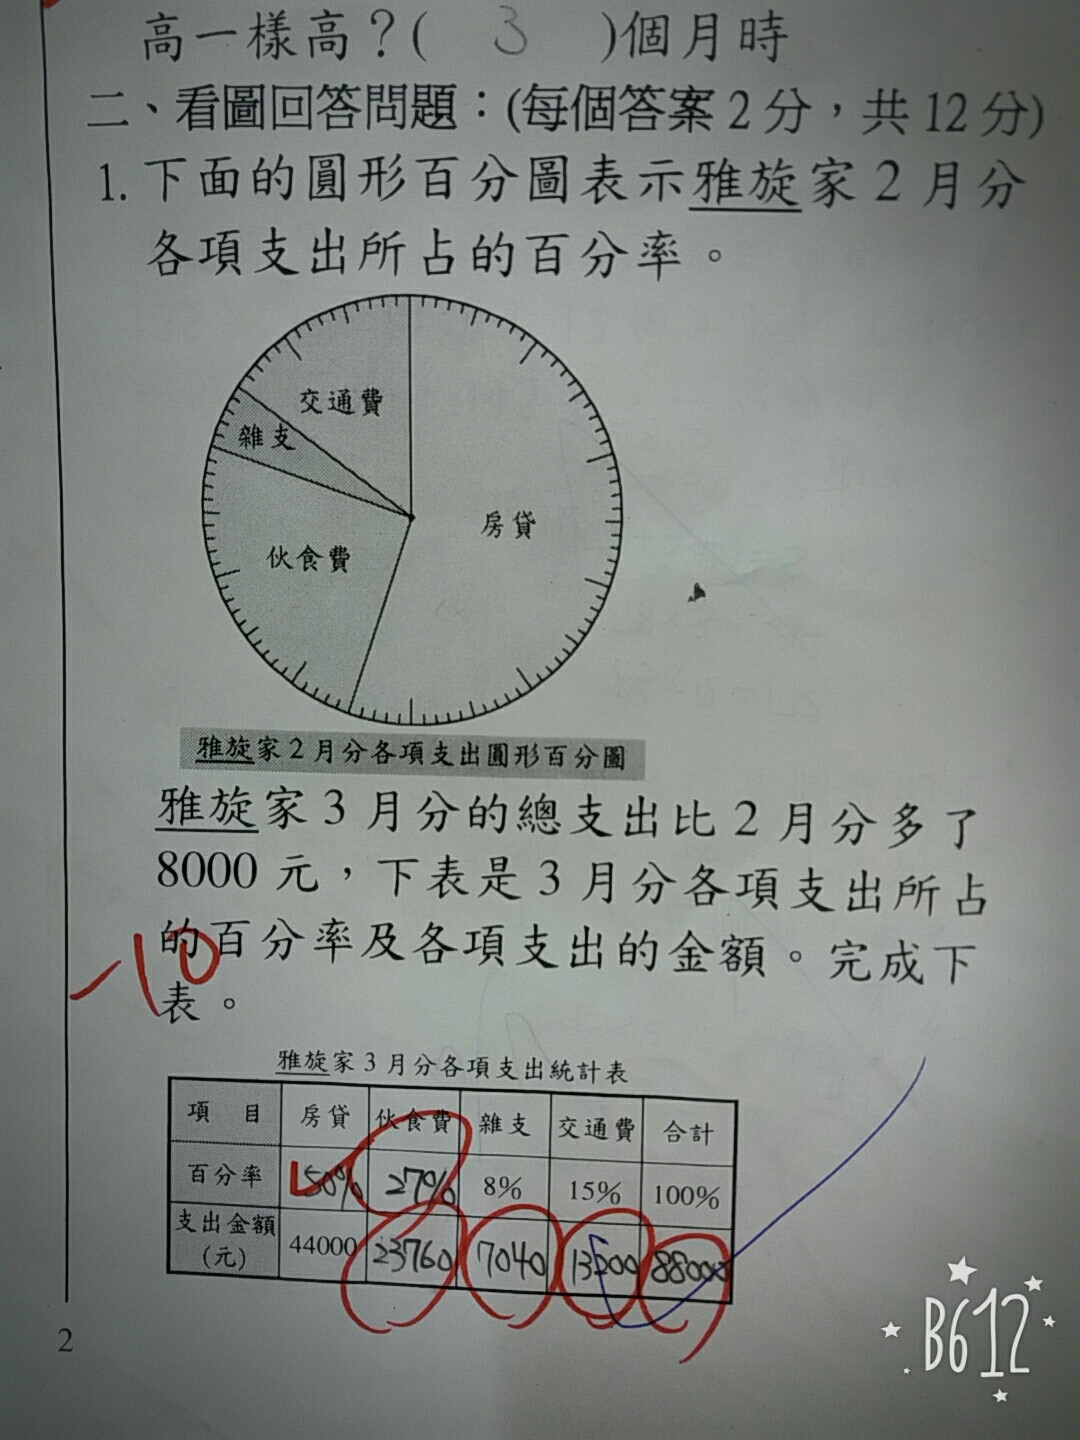 高一樣高？( 3 )個月時
二、看圖回答問題：(每個答案2分，共12分)
1. 下面的圓形百分圖表示雅旋家2月分
各項支出所占的百分率。
交通費
雜支
房貸
伙食費
雅旋家2月分各項支出圓形百分圖
雅旋家3月分的總支出比2月分多了
8000元，下表是3月分各項支出所占
的百分率及各項支出的金額。完成下
表。
-10
雅旋家3月分各項支出統計表
項 目 房貸 伙食費 雜支 交通費 合計
百分率 50% 27% 8% 15% 100%
支出金額(元) 44000 23760 7040 13200 88000
2
B612